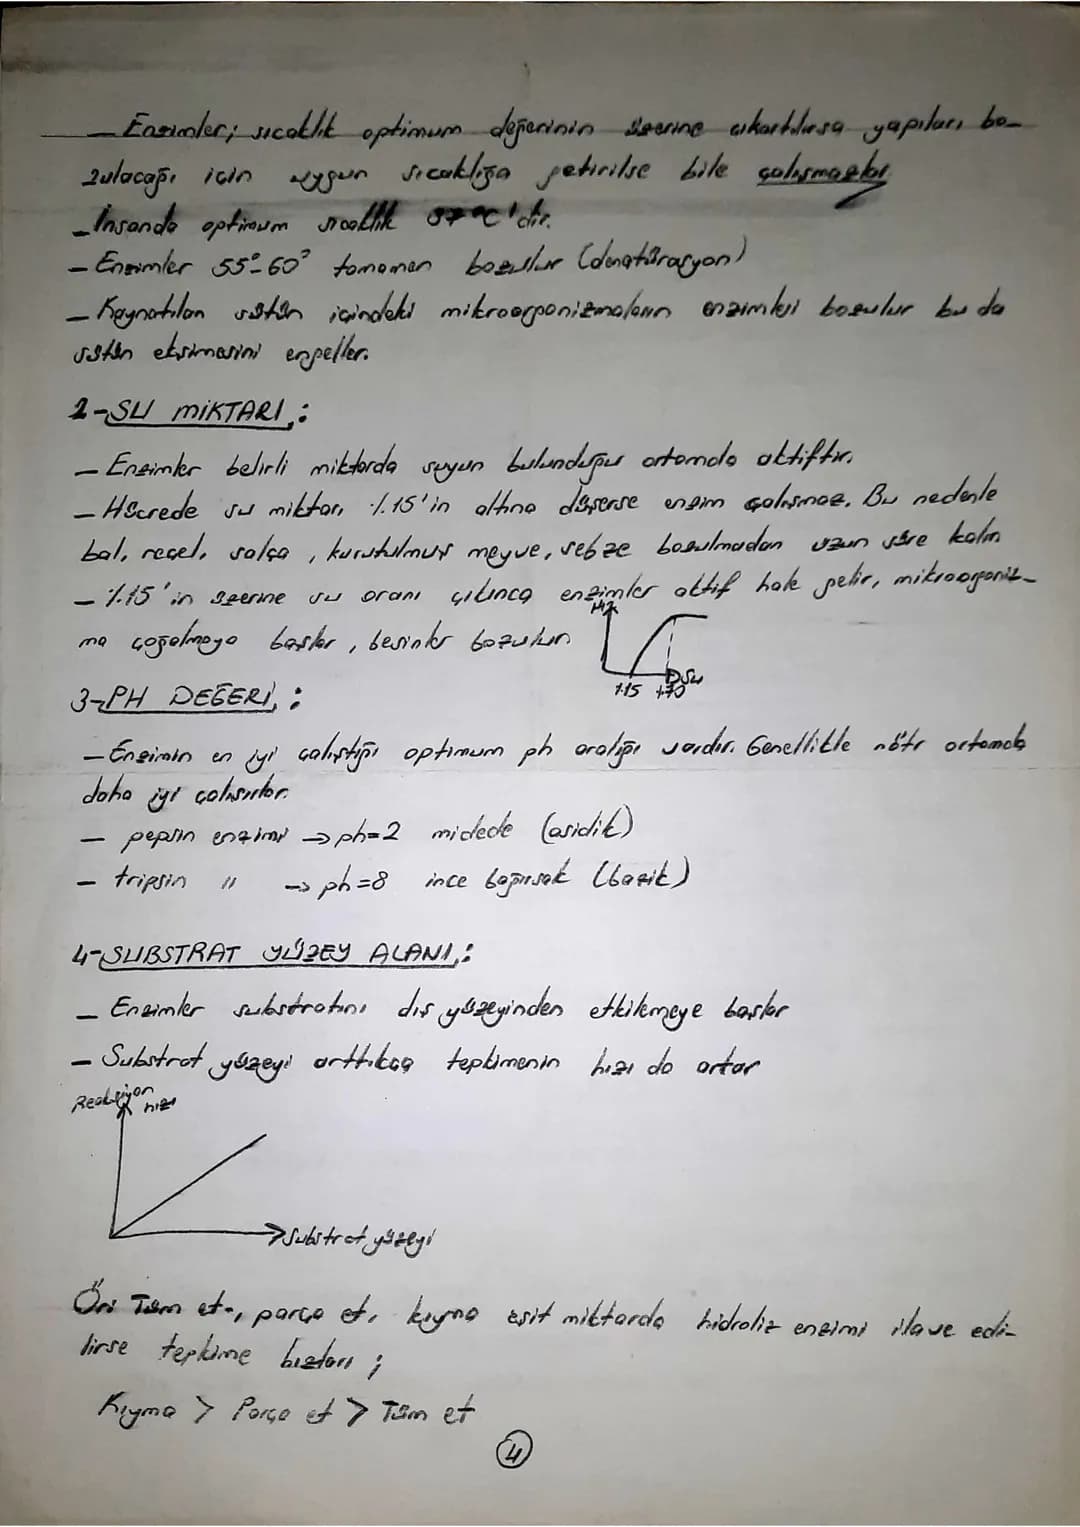 — Enzimler; sıcaklık optimum değerinin üzerine çıkartılırsa yapıları bo-
zulacağı için uygun sıcaklığa getirilse bile çalışmazlar
— İnsanda optimum sıcaklık 37°C'dir.
— Enzimler 55°-60° tamamen bozulur (denatürasyon)
— Kaynatılan sütün içindeki mikroorganizmaların enzimleri bozulur bu da
sütün ekşimesini engeller.
2-SU MİKTARI:
— Enzimler belirli miktarda suyun bulunduğu ortamda aktiftir.
— Hücrede su miktarı %15'in altına düşerse enzim çalışmaz. Bu nedenle
bal, reçel, salça, kurutulmuş meyve, sebze bozulmadan uzun süre kalır
— %15'in üzerine su oranı çıkınca enzimler aktif hale gelir, mikroorganiz-
ma çoğalmaya başlar, besinler bozulur
Hız
Su
%15
3-PH DEĞERİ:
— Enzimin en iyi çalıştığı optimum ph aralığı vardır. Genellikle nötr ortamda
daha iyi çalışırlar.
— pepsin enzimi → ph=2 midede (asidik)
— tripsin " → ph=8 ince bağırsak (bazik)
4-SUBSTRAT YÜZEY ALANI:
— Enzimler substratını dış yüzeyinden etkilemeye başlar
— Substrat yüzeyi arttıkça tepkimenin hızı da artar
Reaksiyon
hızı
Substrat yüzeyi
Ör: Tüm et, parça et, kıyma eşit miktarda hidroliz enzimi ilave edi-
lirse tepkime hızları;
Kıyma > Parça et > Tüm et
4